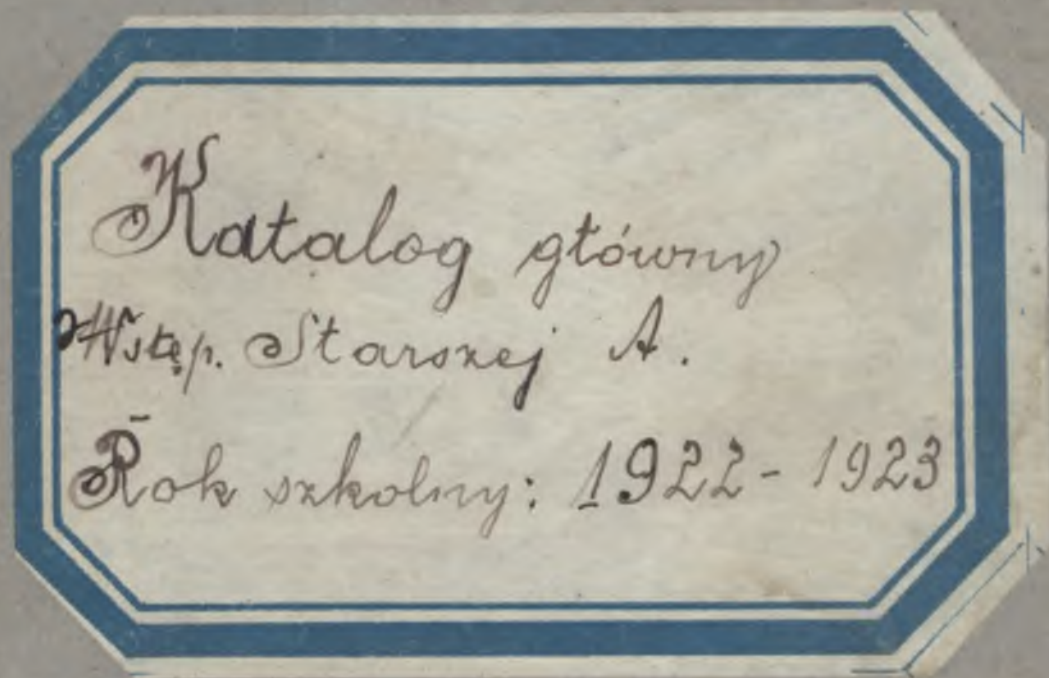 Katalog główny
Wstęp. Starszej A.
Rok szkolny: 1922 - 1923